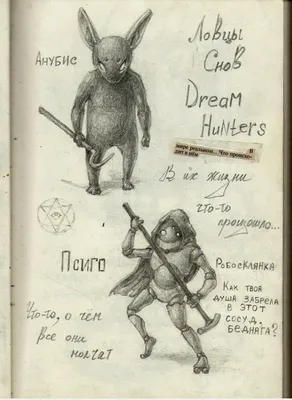 Ловцы
Снов
Dream
Hunters
Анубис
В
мире реальном... Что происхо-
дит в нём
В их жизни
что-то
произошло...
Псиго
Робосклянка
Как твоя
душа забрела
в этот
сосуд,
бедняга?
Что-то, о чём
все они
молчат